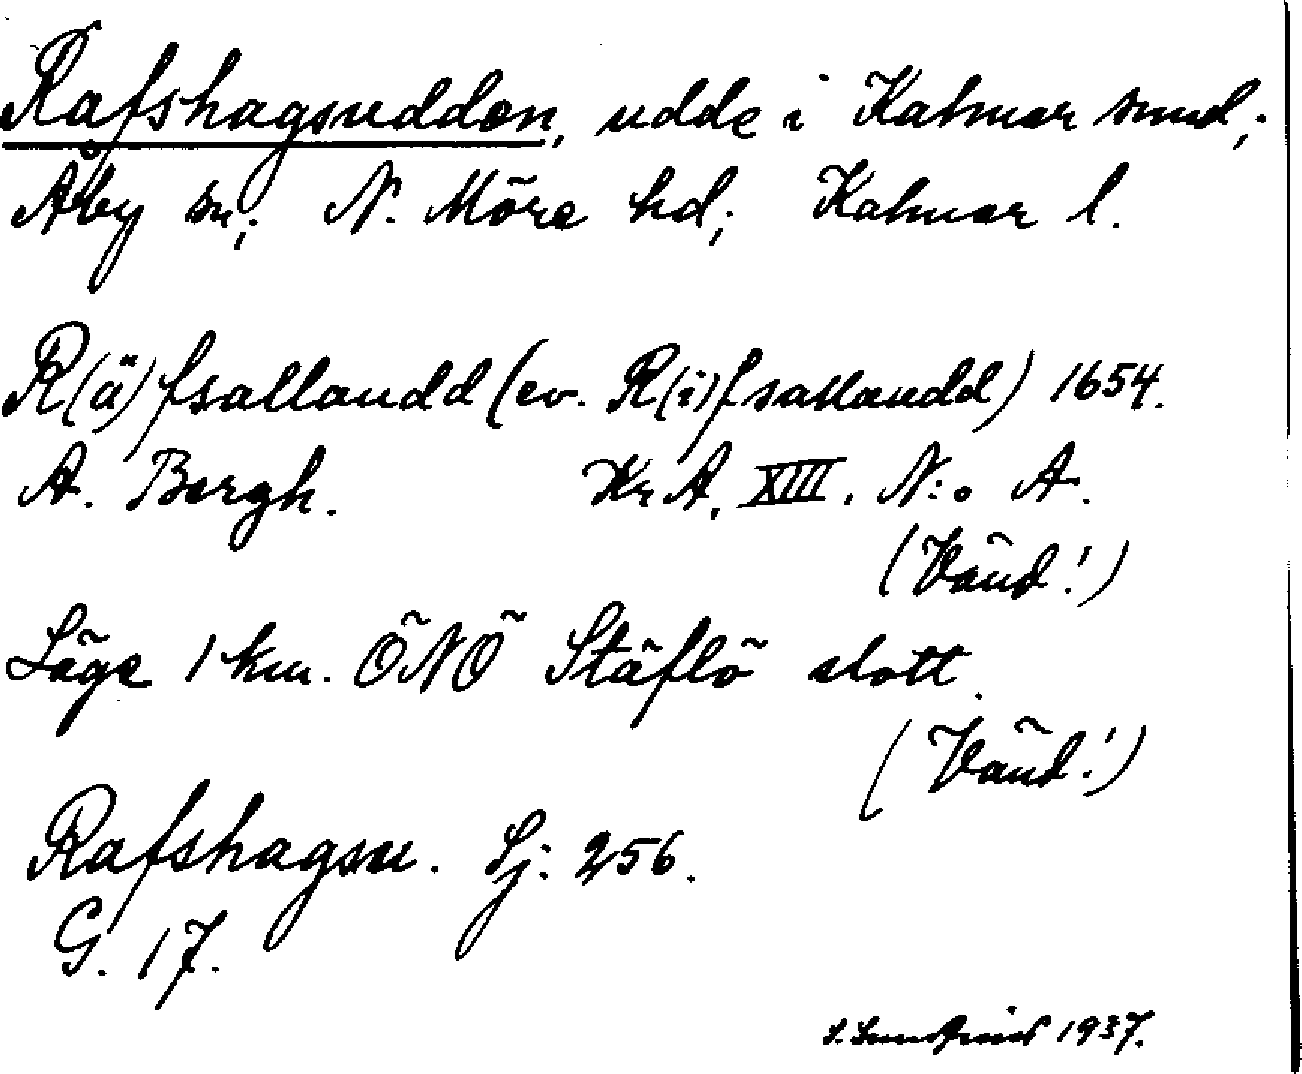 Rafshagsudden, udde i Kalmar sund;
Åby sn; N. Möre hd; Kalmar l.
R(ä)fsallaudd (ev. R(i)fsallaudd) 1654.
A. Bergh. Kr A, XIII. N:o A.
(Vänd!)
Läge 1 km. ÖNÖ Stäflö slott.
(Vänd!)
Rafshagsu. Sj: 256.
G. 17.
1937.